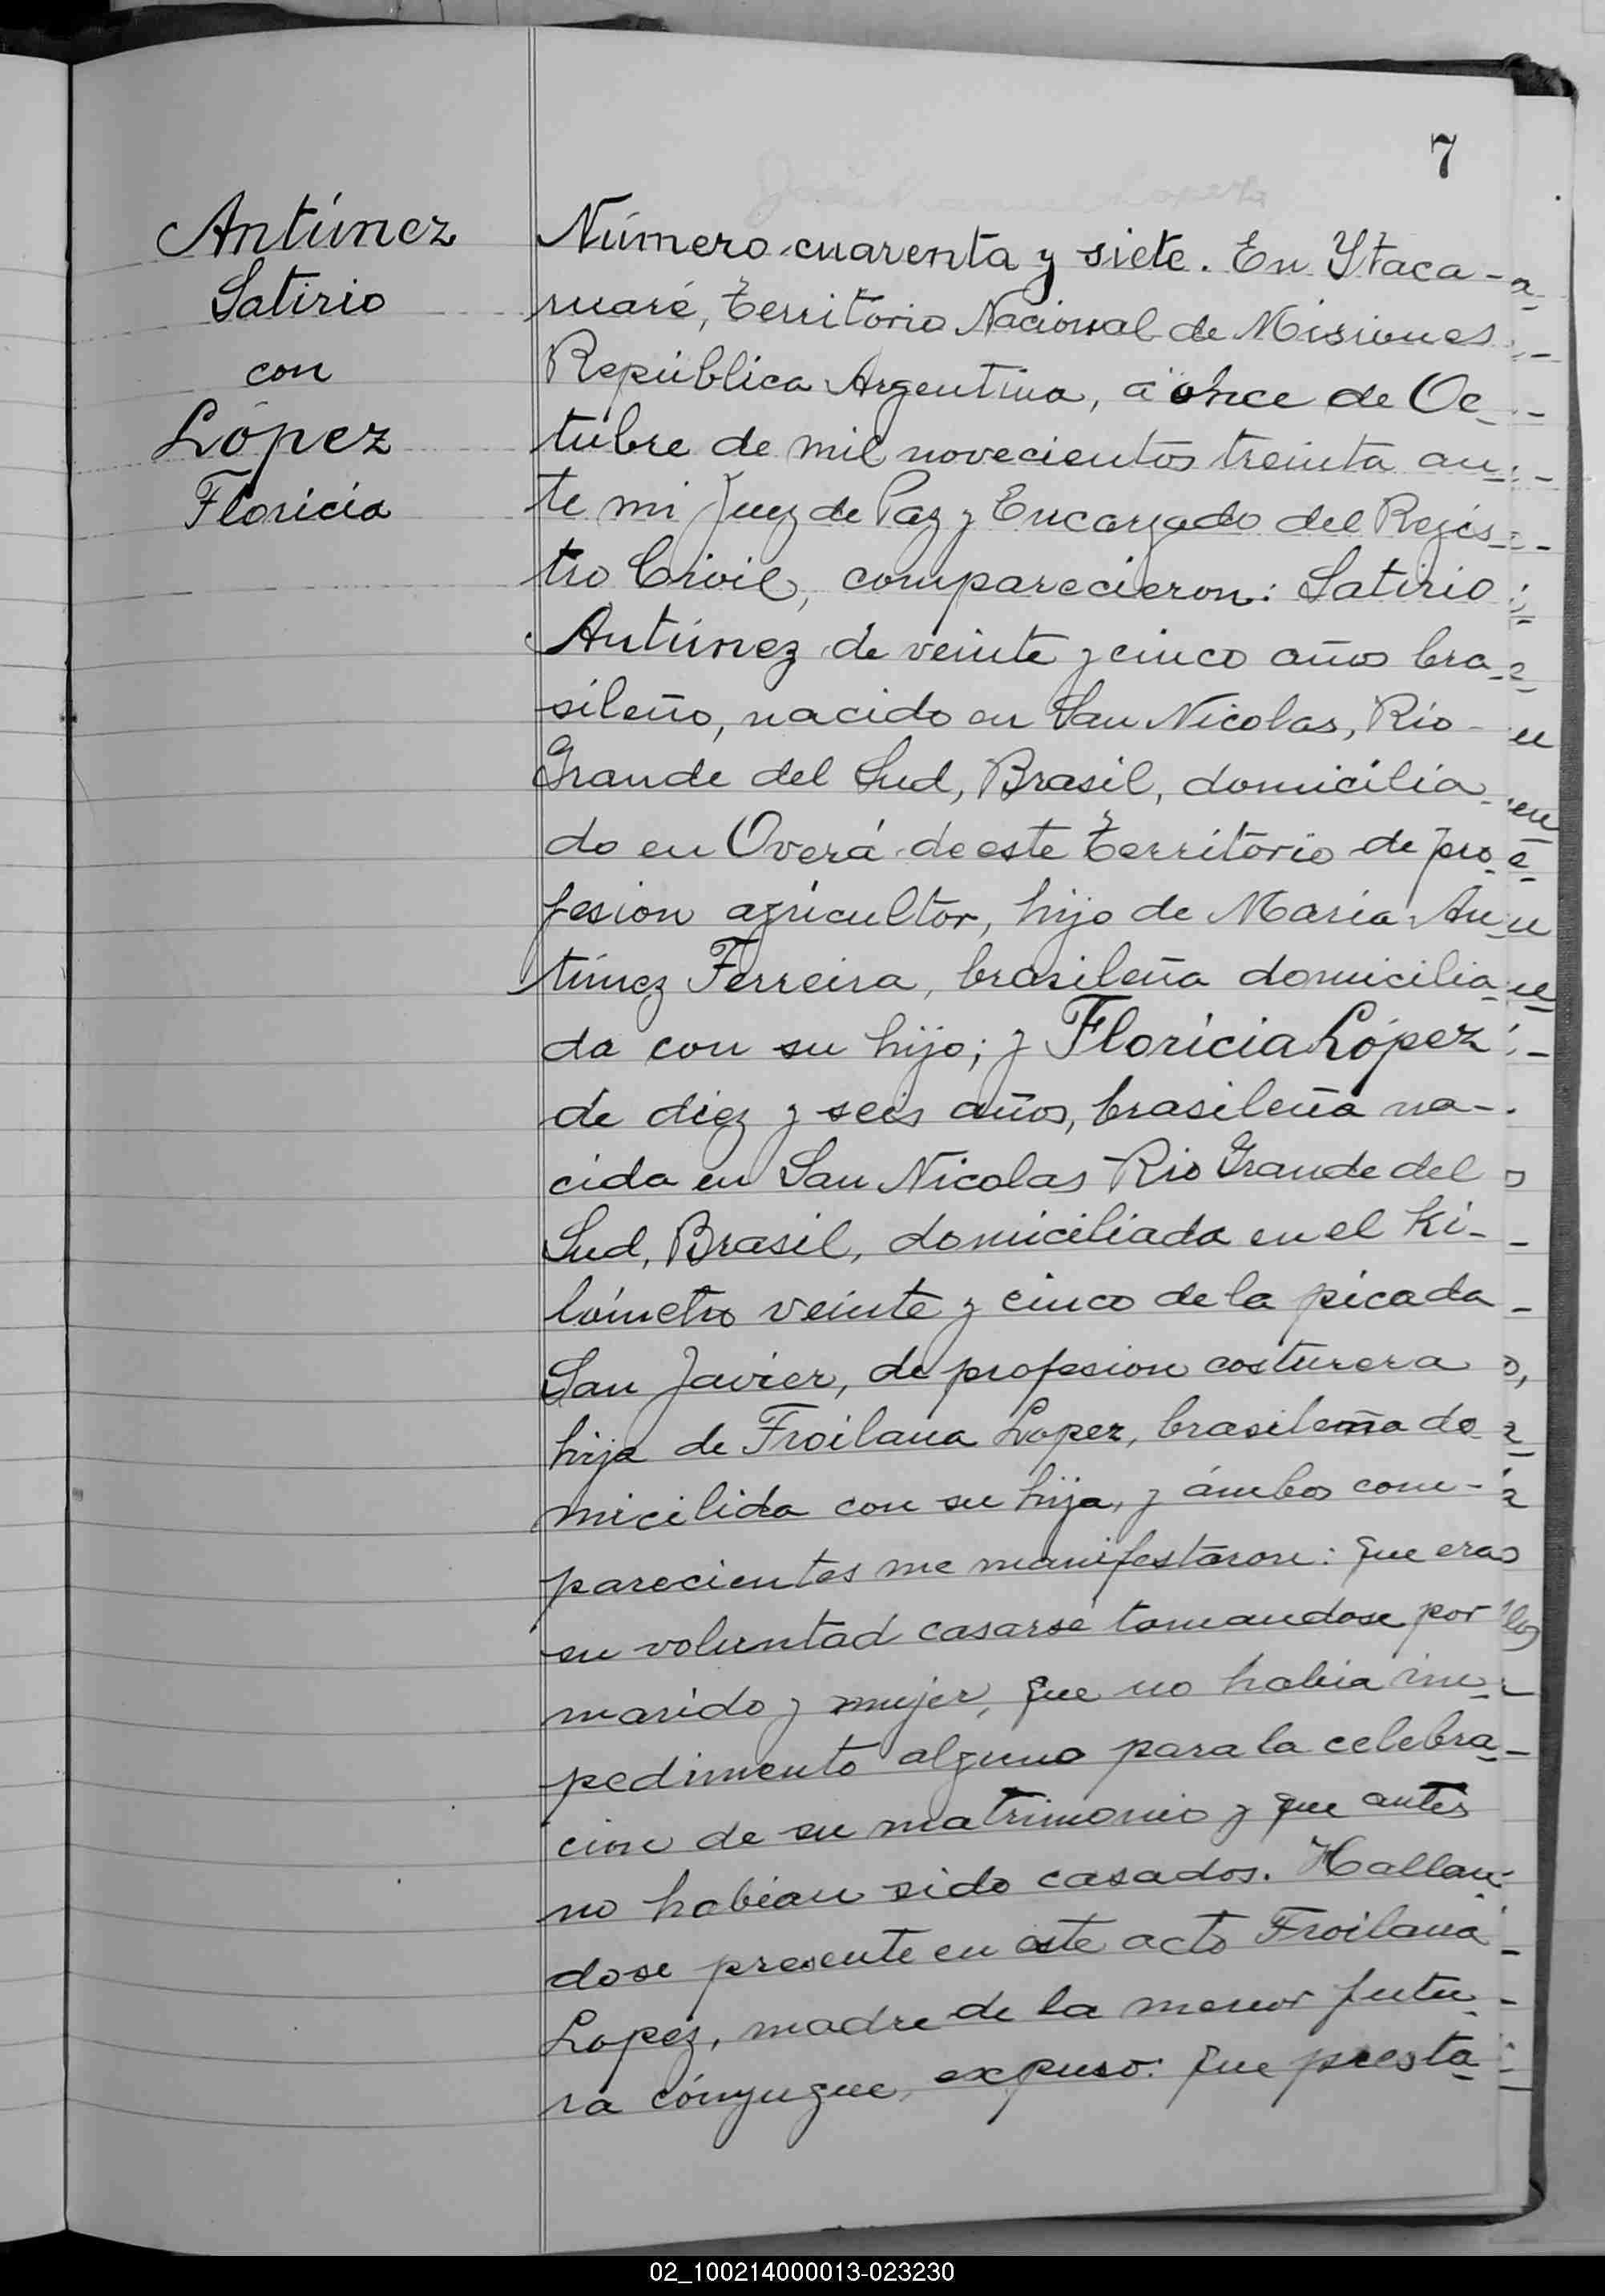 7
Antúnez
Satirio
con
López
Floricia
Número cuarenta y siete. En Ytaca-
ruaré, Territorio Nacional de Misiones
República Argentina, a once de Oc-
tubre de mil novecientos treinta an-
te mi Juez de Paz y Encargado del Regis-
tro Civil, comparecieron: Satirio
Antúnez de veinte y cinco años bra-
sileño, nacido en San Nicolas, Rio
Grande del Sud, Brasil, domicilia-
do en Overá de este Territorio de pro-
fesion agricultor, hijo de Maria An-
túnez Ferreira, brasileña domicilia-
da con su hijo; y Floricia López
de diez y seis años, brasileña na-
cida en San Nicolas Rio Grande del
Sud, Brasil, domiciliada en el Ki-
lómetro veinte y cinco de la picada
San Javier, de profesion costurera
hija de Froilana Lopez, brasileña do
micilida con su hija, y ámbos com-
parecientes me manifestaron: que era
su voluntad casarse tomandose por
marido y mujer, que no habia im-
pedimento alguno para la celebra-
cion de su matrimonio y que antes
no habian sido casados. Hallan-
dose presente en este acto Froilana
Lopez, madre de la menor futu-
ra cónyugue, expuso: que presta-
02_100214000013-023230